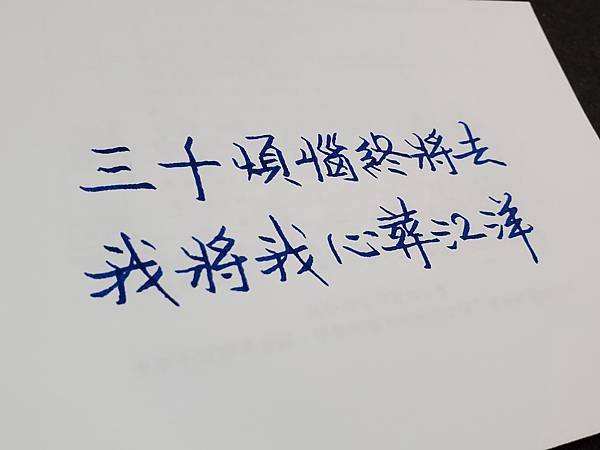 三千煩惱終將去
我將我心葬江洋